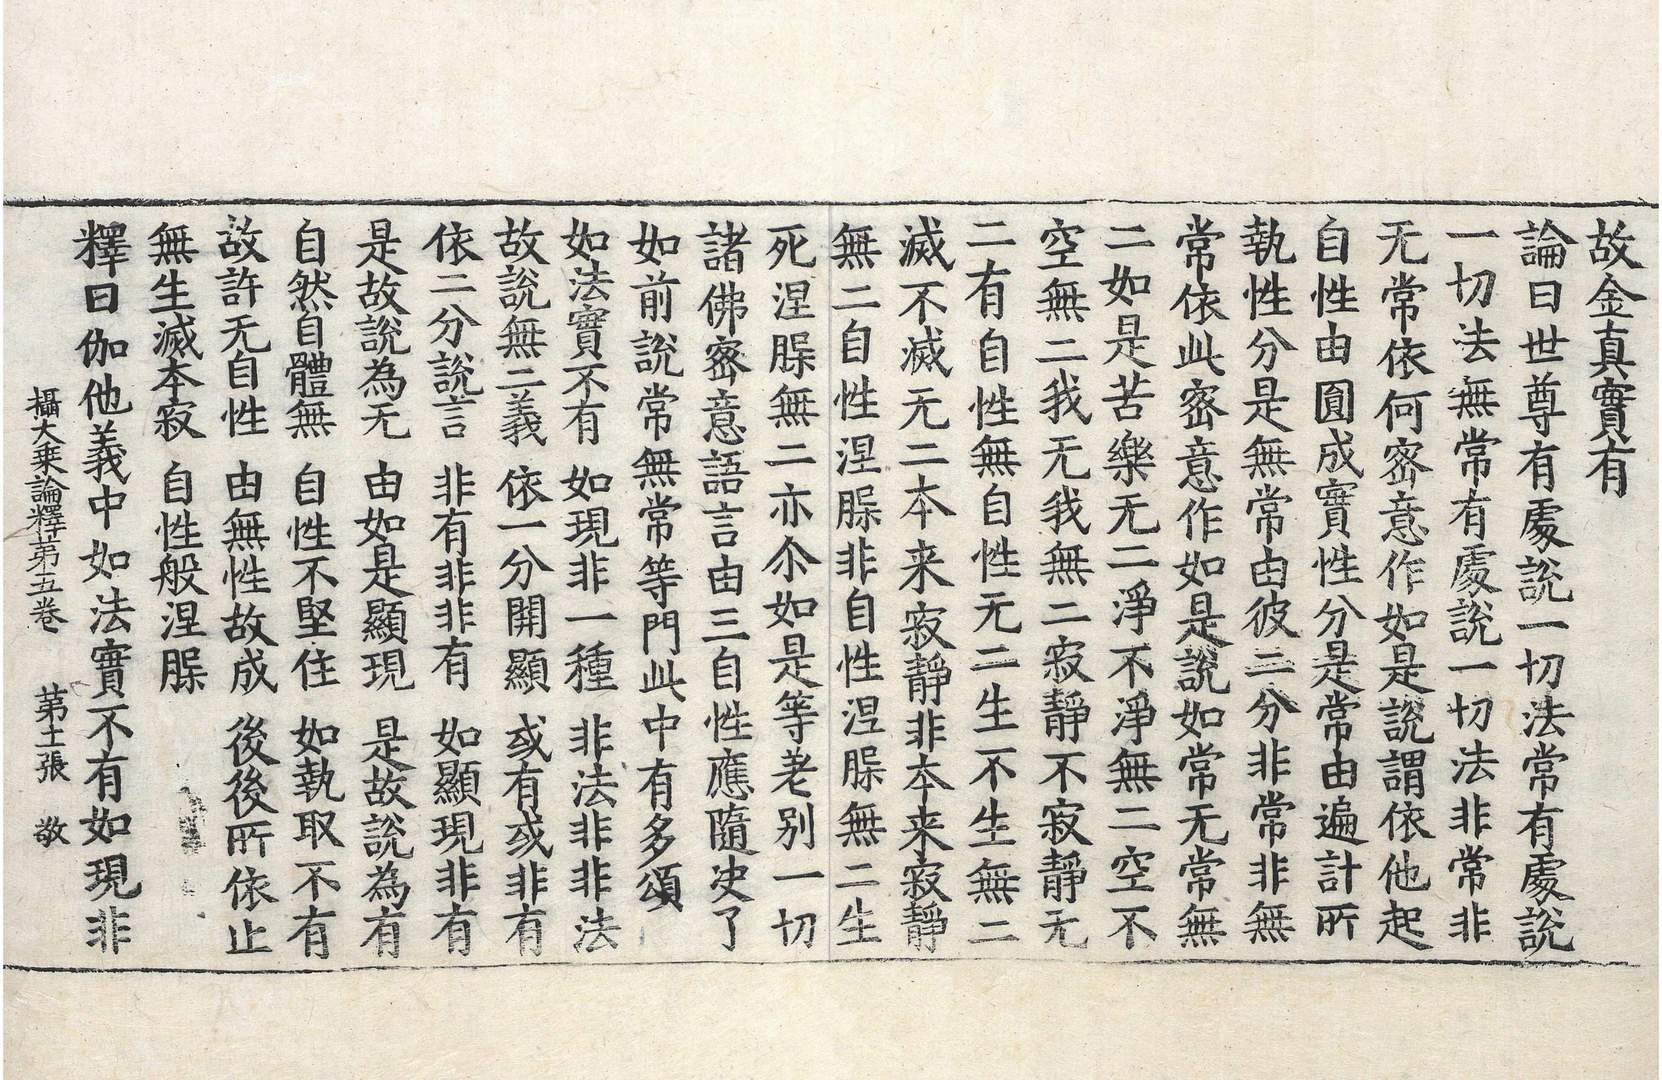 故金真實有
論曰世尊有處說一切法常有處說
一切法無常有處說一切法非常非
无常依何密意作如是說謂依他起
自性由圓成實性分是常由遍計所
執性分是無常由彼二分非常非無
常依此密意作如是說如常无常無
二如是苦樂无二淨不淨無二空不
空無二我无我無二寂靜不寂靜无
二有自性無自性无二生不生無二
滅不滅无二本来寂靜非本来寂靜
無二自性涅槃非自性涅槃無二生
死涅槃無二亦尒如是等差別一切
諸佛密意語言由三自性應隨決了
如前說常無常等門此中有多頌
如法實不有 如現非一種 非法非非法
故說無二義 依一分開顯 或有或非有
依二分說言 非有非非有 如顯現非有
是故說為无 由如是顯現 是故說為有
自然自體無 自性不堅住 如執取不有
故許无自性 由無性故成 後後所依止
無生滅本寂 自性般涅槃
釋曰伽他義中如法實不有如現非
攝大乗論釋苐五卷 苐土張 敬